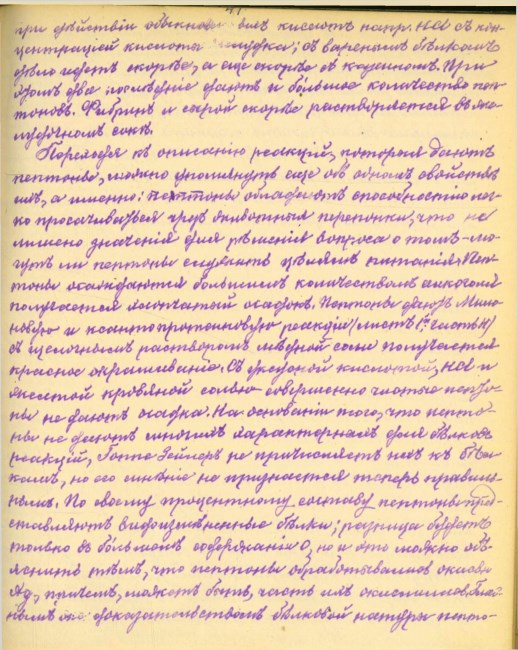 при дѣйствіи обыкнов. бываетъ кислотъ напр. HCl съ кон-
центраціей кислоты желудка; съ варенымъ бѣлкомъ
дѣло идетъ скорѣе, а еще скорѣе съ казеиномъ. При
этомъ два послѣдніе даютъ и большое количество пеп-
тоновъ. Фибринъ и сырой скорѣе растворяется въ же-
лудочномъ сокѣ.
Переходя къ описанію реакцій, которыя даютъ
пептоны, можно упомянуть еще объ одномъ свойствѣ
ихъ, а именно: пептоны обладаютъ способностію лег-
ко просачиваться чрезъ животныя перепонки, что не
лишено значенія для рѣшенія вопроса о томъ – мо-
гутъ ли пептоны служить цѣлямъ питанія. Пеп-
тоны осаждаются большимъ количествомъ алкоголя
получается хлопчатый осадокъ. Пептоны даютъ Милло-
новую и ксантопротеиновую реакціи (листъ 1й часть II)
съ щелочнымъ растворомъ мѣдной соли получается
красное окрашиваніе. Съ уксусной кислотой, HCl и
желтой кровяной солью совершенно чистые пепто-
ны не даютъ осадка. На основаніи того, что пепто-
ны не даютъ многихъ характерныхъ для бѣлковъ
реакцій, Гоппе Зейлеръ не причисляетъ ихъ къ бѣл-
камъ, но его мнѣніе не признается теперь правиль-
нымъ. По своему процентному составу пептоны пред-
ставляютъ видоизмѣненные бѣлки; разница будетъ
только въ большомъ содержаніи O, но и это можно объ-
яснить тѣмъ, что пептоны обрабатывались
причемъ, можетъ быть, часть ихъ окислилась. Глав-
нымъ же доказательствомъ бѣлковой натуры пепто-